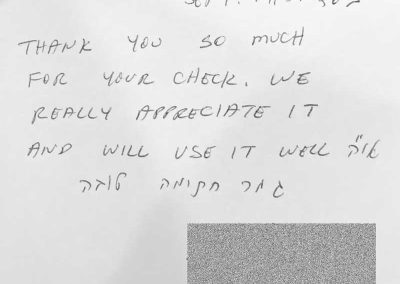 THANK YOU SO MUCH
FOR YOUR CHECK. WE
REALLY APPRECIATE IT
AND WILL USE IT WELL אי"ה
גמר חתימה טובה